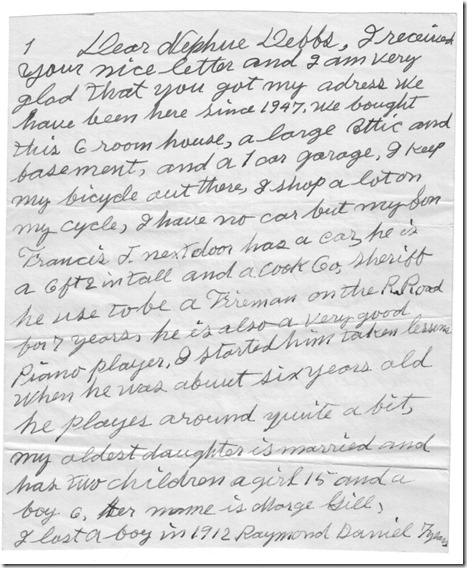 1 Dear Nephue Debbs, I received
your nice letter and I am very
glad that you got my adress we
have been here since 1947. we bought
this 6 room house, a large attic and
basement, and a 1 car garage, I keep
my bicycle out there, I shop a lot on
my cycle, I have no car but my son
Francis J. next door has a car, he is
a 6 ft 2 in tall and a Cook Co, Sheriff
he use to be a Fireman on the R. Road
for 7 years, he is also a very good
Piano player, I started him taken lessons
when he was about six years old
he playes around quite a bit,
my oldest daughter is married and
has two children a girl 15 and a
boy 6, Her name is Marge Gill,
I lost a boy in 1912 Raymond Daniel